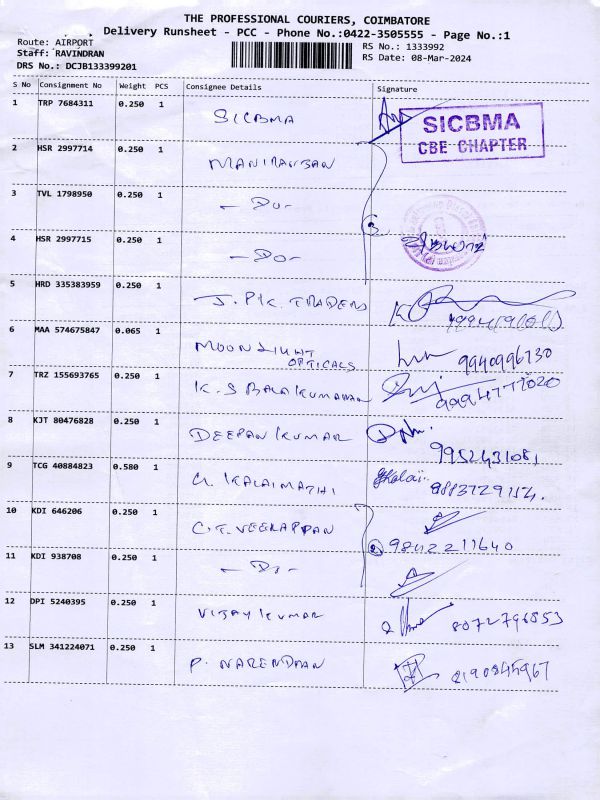 THE PROFESSIONAL COURIERS, COIMBATORE
Delivery Runsheet - PCC - Phone No.:0422-3505555 - Page No.:1
Route: AIRPORT
RS No.: 1333992
Staff: RAVINDRAN
RS Date: 08-Mar-2024
DRS No.: DCJB133399201
S No Consignment No Weight PCS Consignee Details Signature
1 TRP 7684311 0.250 1 SICBMA
SICBMA
CBE CHAPTER
2 HSR 2997714 0.250 1 MANIMARAN
3 TVL 1798950 0.250 1 - Do -
4 HSR 2997715 0.250 1 - Do -
5 HRD 335383959 0.250 1 J. P.K. TRADERS
6 MAA 574675847 0.065 1 MOON LIGHT OPTICALS 9940996730
7 TRZ 155693765 0.250 1 K. S BALAKUMARAN 9994777020
8 KJT 80476828 0.250 1 DEEPAN KUMAR
9952431081
9 TCG 40884823 0.580 1 KALAIMATHI Kalai 9883729154.
10 KDI 646206 0.250 1 C.T. VEERAPPAN
9842211640
11 KDI 938708 0.250 1 - Do -
12 DPI 5240395 0.250 1 VIJAY KUMAR 8072796853
13 SLM 341224071 0.250 1 P. NARENDRAN 8190845967